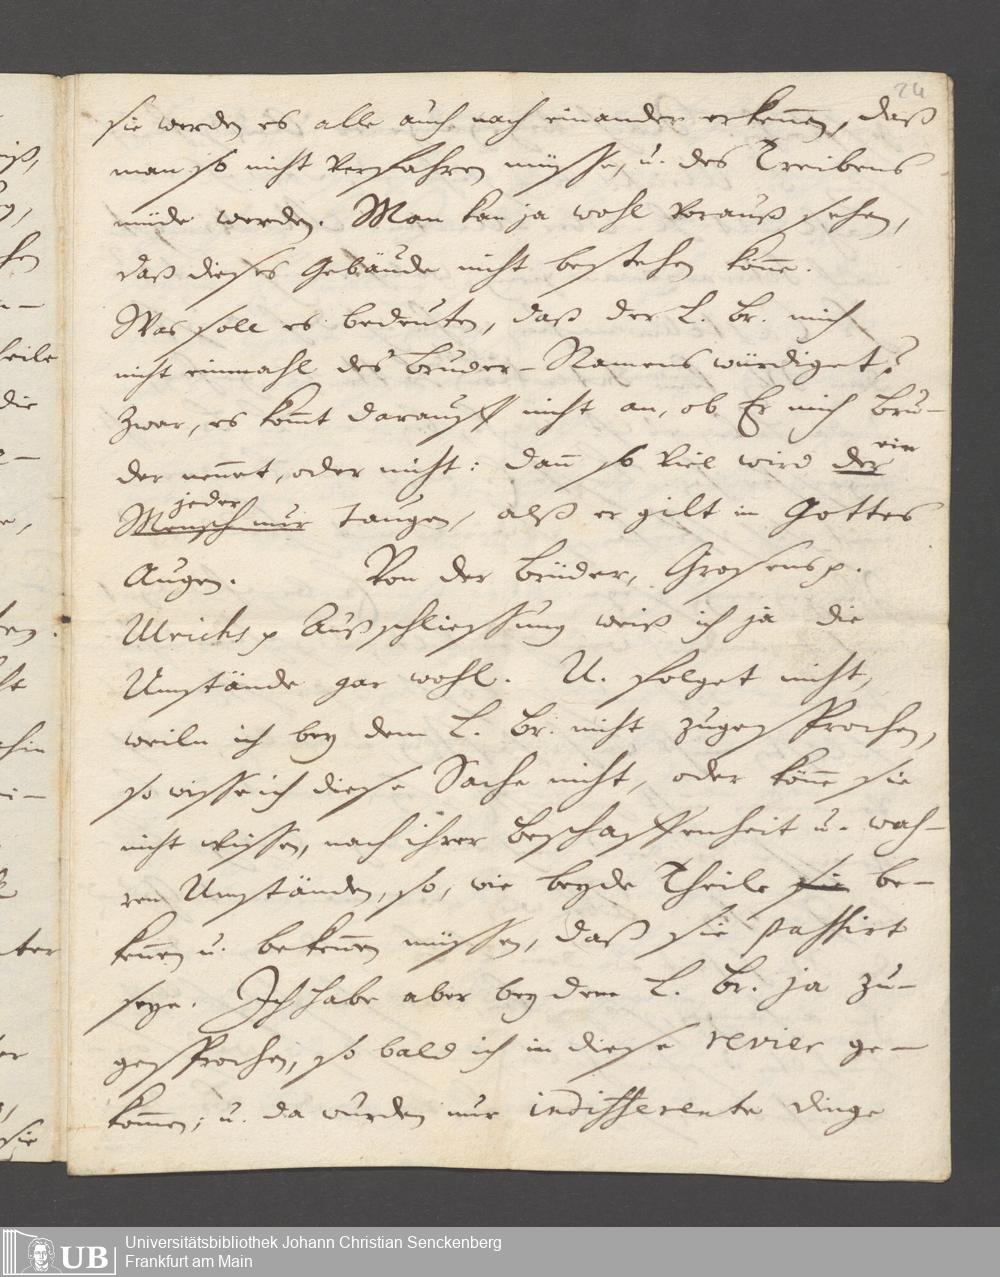 24
sie werden es alle auch nach einander erkennen, daß
man so nicht verfahren müsse, u. des Treibens
müde werden. Man kan ja wohl vorauß sehen,
daß dieses Gebäude nicht bestehen könne.
Was soll es bedeuten, daß der L. Br. mich
nicht einmahl des Bruder-Namens würdiget?
Zwar, es komt darauff nicht an, ob Er mich Bru-
der nennet, oder nicht: dann so viel wird der ein
Mensch nur jeder taugen, alß er gilt in Gottes
Augen. Von der Brüder, Grosens p.
Ulrichs p Außschliessung weiß ich ja die
Umstände gar wohl. U. folget nicht,
weiln ich bey dem L. Br. nicht zugesprochen,
so wisse ich diese Sache nicht, oder könne sie
nicht wissen, nach ihrer Beschaffenheit u. wah-
ren Umständen, so, wie beyde Theile sie be-
kennen u. bekennen müssen, daß sie passirt
seye. Ich habe aber bey dem L. Br. ja zu-
gesprochen, so bald ich in diese revier ge-
kommen; u. da wurden nur indifferente dinge
UB
Universitätsbibliothek Johann Christian Senckenberg
Frankfurt am Main